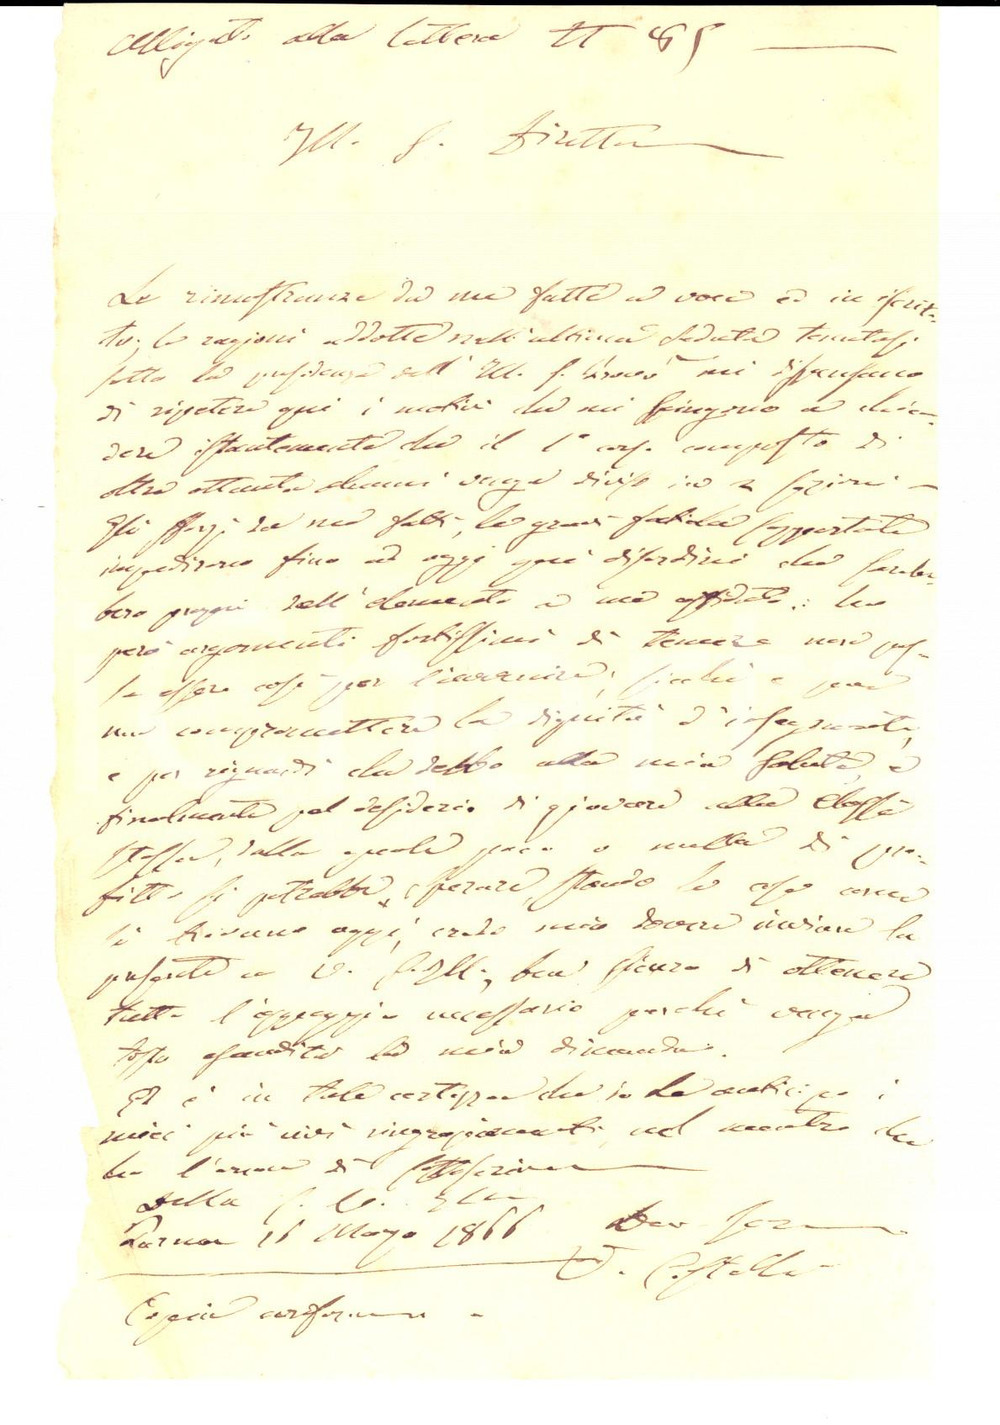 Allegato alla lettera N 85
Ill. S. Direttore
Le rimostranze da me fatte a voce ed in iscrit-
to, le ragioni addotte nell'ultima seduta tenutasi
sotto la presidenza dell' Ill. S. mi dispensano
di ripetere qui i motivi che mi spingono a chie-
dere istantemente che il 1° corso composto di
oltre ottanta alunni venga diviso in 2 sezioni -
Gli sforzi da me fatti, le gravi fatiche sopportate
impedirono fino ad oggi ogni disordine che sareb-
bero proprii dell'elemento a me affidato: ho
però argomenti fortissimi di temere non pos-
sa essere così per l'avvenire; sicchè e per
non compromettere la dignità d'insegnante,
e per riguardi che debbo alla mia salute, e
finalmente pel desiderio di giovare alla classe
stessa, dalla quale poco o nulla di pro-
fitto si potrebbe sperare, stando le cose come
si trovano oggi, credo mio dovere inviare la
presente a V. S. Ill., ben sicuro di ottenere
tutto l'appoggio necessario perchè venga
tosto esaudita la mia dimanda.
Ed è in tale certezza che io Le anticipo i
miei più vivi ringraziamenti nel mentre che
ho l'onore di sottoscrivermi
Della S. V. Ill.
Parma 15 Marzo 1866 Dev. Servo
Copia conforme -